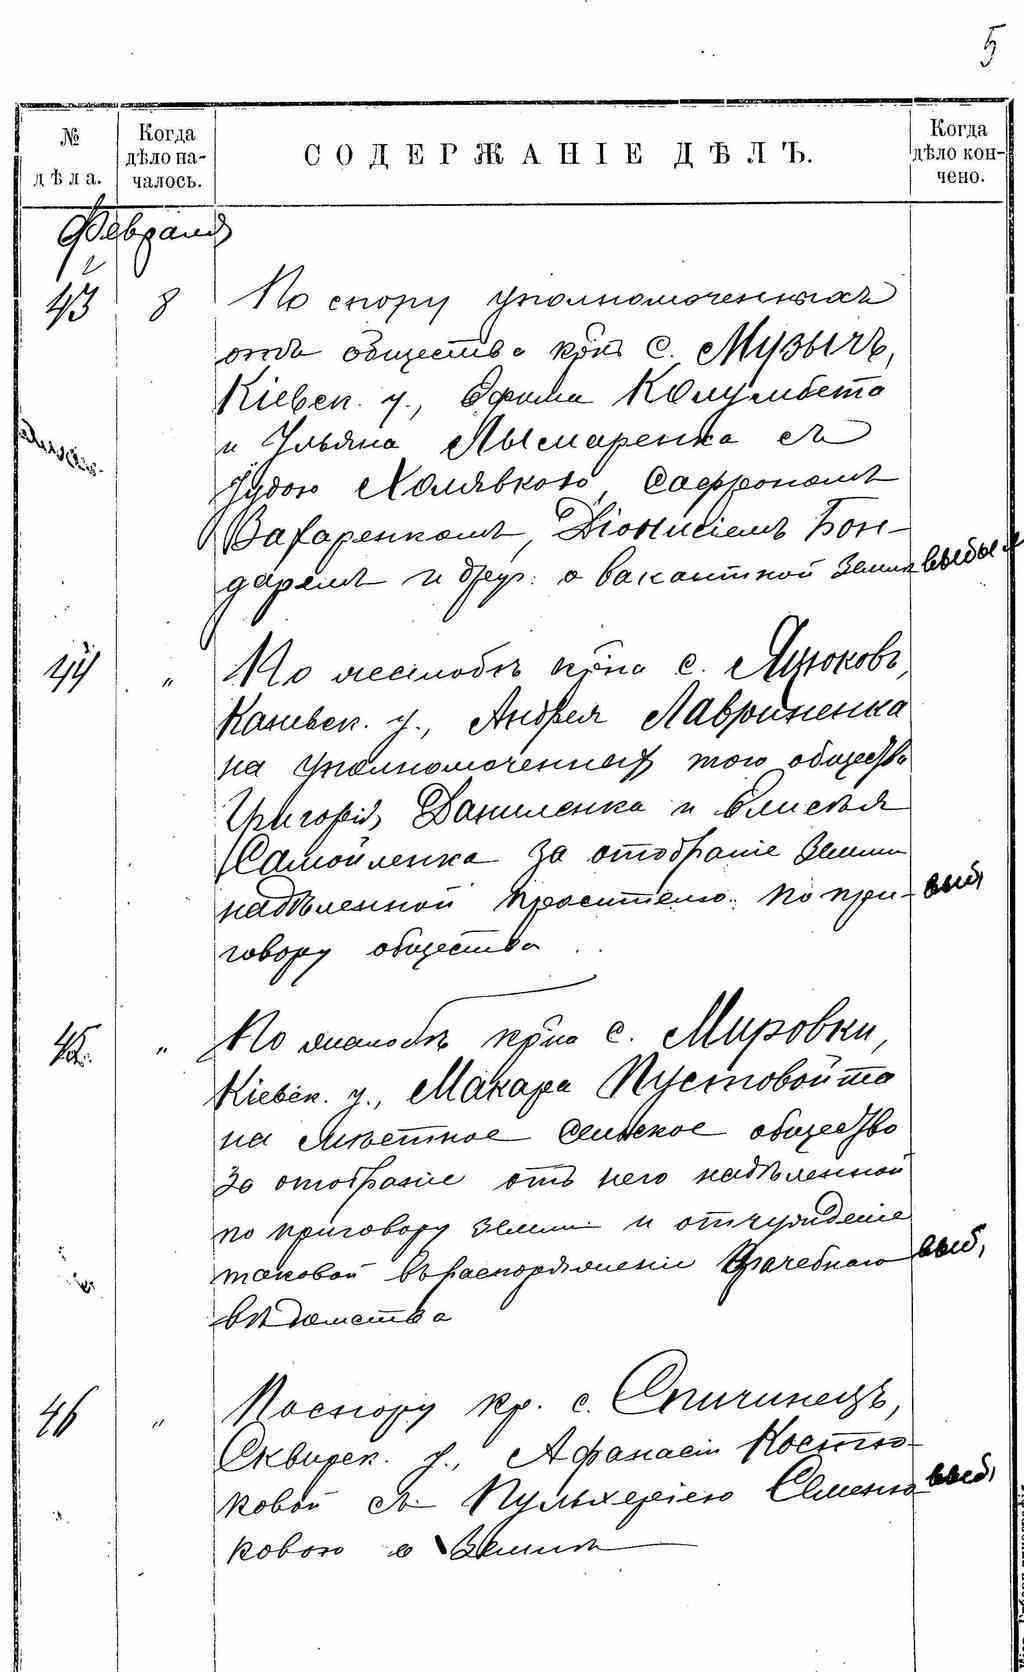 5
№ дѣла.
Когда дѣло началось.
СОДЕРЖАНІЕ ДѢЛЪ.
Когда дѣло кончено.
Февраля
43 8 По спору уполномоченныхъ
отъ общества кр̃нъ с. Музычъ,
Кіевск. у., Ефима Колумбета
и Ульяна Лымаренка съ
Іудою Халявкою, Сафрономъ
Захаренкомъ, Діонисіемъ Бон-
даремъ и друг: о вакантной земли выбыло
44 " По жалобѣ кр̃на с. Яцюковъ,
Каневск. у., Андрея Лавриненка
на уполномоченныхъ того общества
Григорія Даниленка и Елисѣя
Самойленка за отобраніе земли
надѣленной просителю по при- выб,
говору общества
45. " По жалобѣ кр̃на с. Мировки,
Кіевск. у., Макара Пустовойта
на мѣстное сельское общество
За отобраніе отъ него надѣленной
по приговору земли и отчужденіе
таковой въ распоряженіи Врачебнаго выб,
вѣдомства
46 " По спору кр. с. Спичинецъ,
Сквирск. у., Афанасіи Костю-
ковой съ Пульхеріею Семеню- выб,
ковою о землѣ